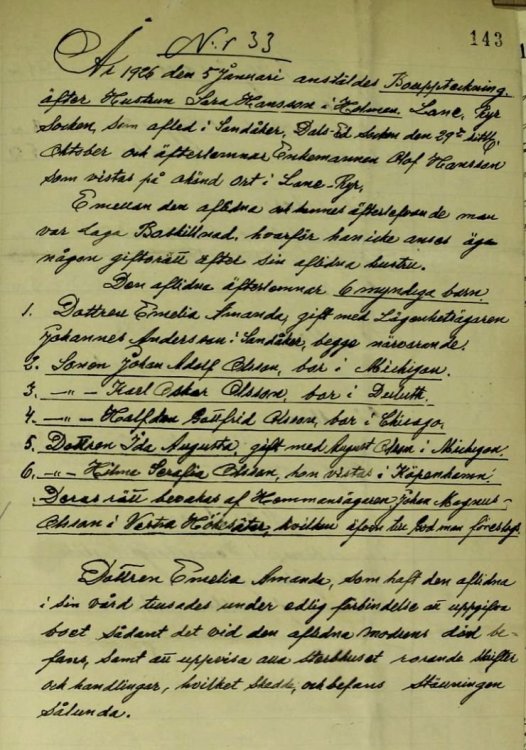 143
N:r 33
År 1926 den 5 Januari anstäldes Bouppteckning
äfter Hustrun Sara Hansson i Holmen, Lane-Ryr
Socken, som afled i Sandåker, Dals-Ed Socken den 29de sistl.
Oktober och äfterlemnar Enkemannen Olof Hansson
som vistas på okänd ort i Lane-Ryr.
Emellan den aflidna och hennes äfterlefvande man
var Laga Boskillnad, hvarför han icke anses äga
någon giftorätt efter sin aflidna hustru.
Den aflidna äfterlemnar 6 myndiga barn
1. Dottren Emelia Amanda, gift med Lägenhetsägaren
Johannes Andersson i Sandåker, begge närvarande.
2. Sonen Johan Adolf Olsson, bor i Michigan.
3. —„— Karl Oskar Olsson, bor i Duluth.
4. —„— Halfdan Gottfrid Olsson, bor i Chicago.
5. Dottren Ida Augusta, gift med August Olson i Michigan.
6. —„— Hilma Serafia Olsson, hon vistas i Köpenhamn.
Deras rätt bevakes af Hemmansägaren Johan Magnus
Olsson i Vestra Höksäter, hvilken äfven till God man föreslogs
Dottren Emelia Amanda, som haft den aflidna
i sin vård tillsades under edlig förbindelse att uppgifva
boet sådant det vid den aflidna modrens död be-
fans, samt att uppvisa alla Sterbhuset rörande skrifter
och handlingar, hvilket skedde, och befans Ställningen
Sålunda.